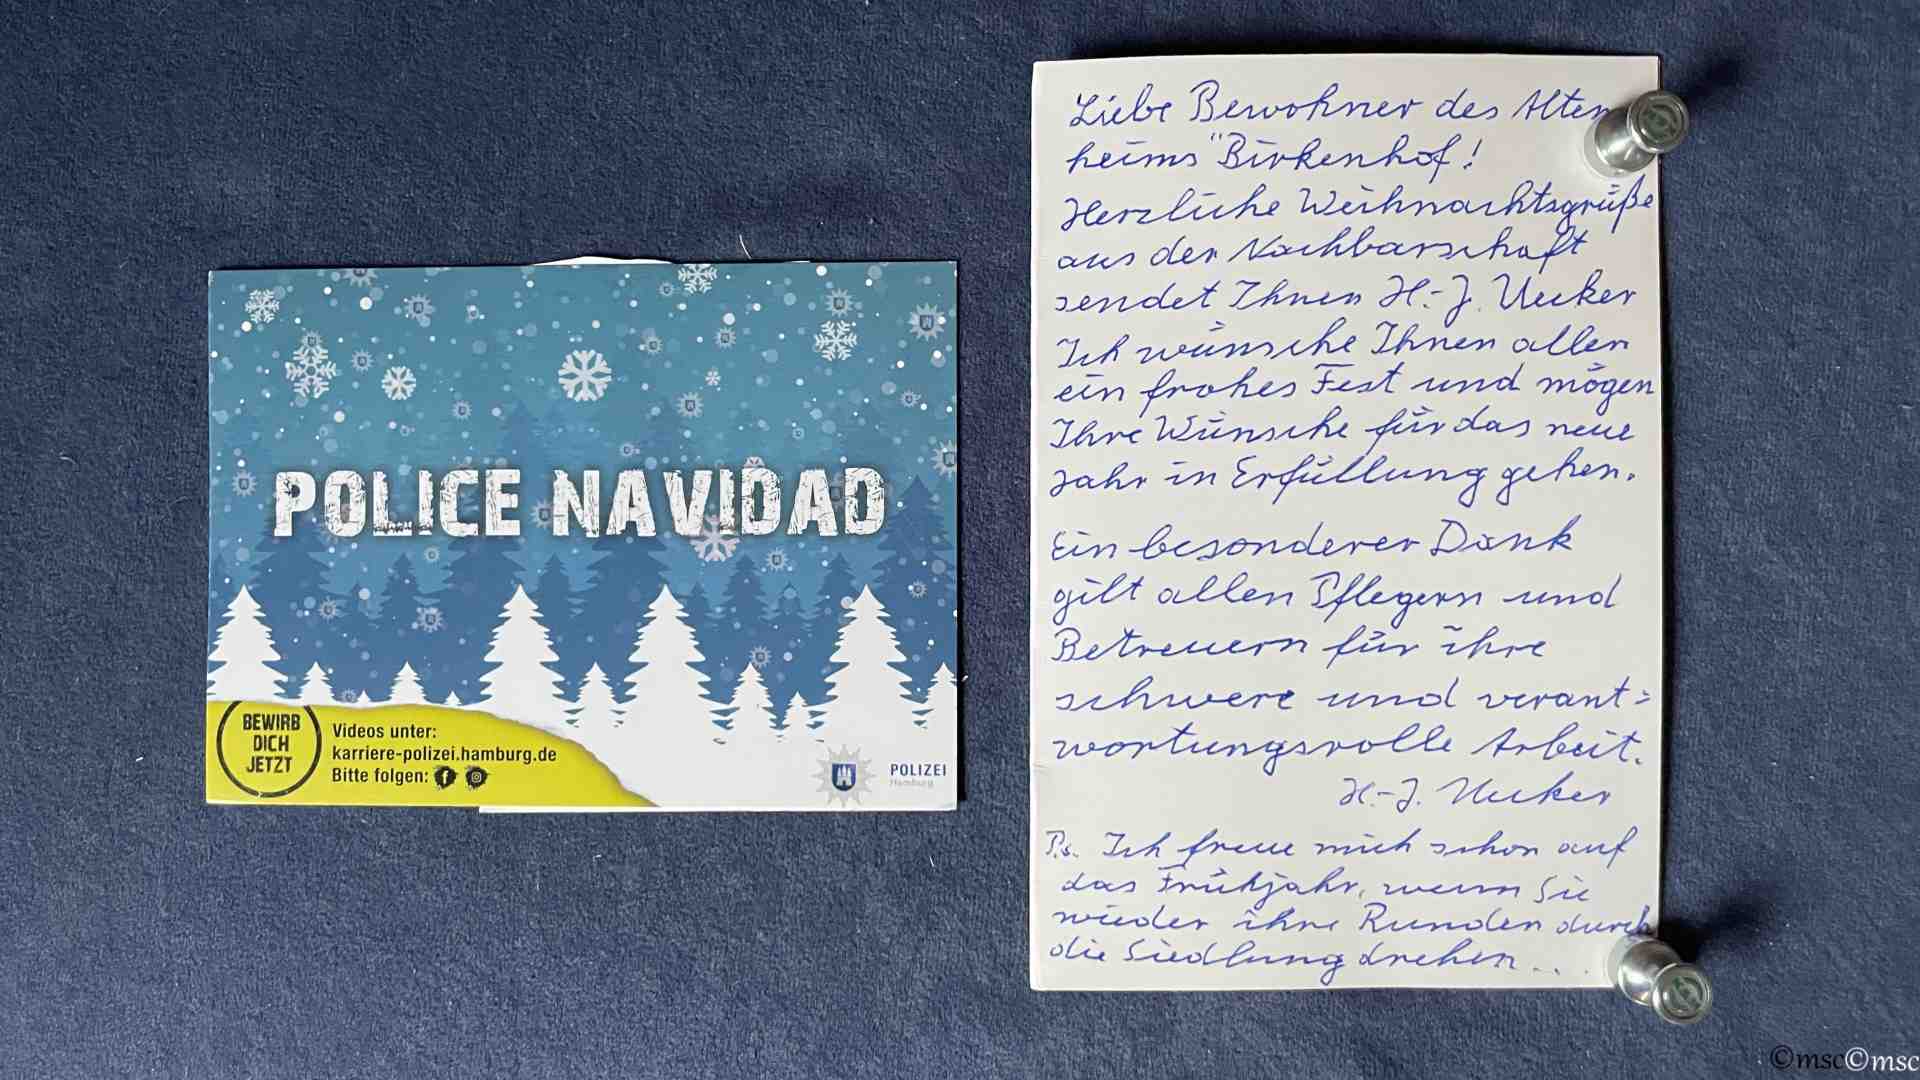 POLICE NAVIDAD
BEWIRB
DICH
JETZT
Videos unter:
karriere-polizei.hamburg.de
Bitte folgen:
POLIZEI
Hamburg
Liebe Bewohner des Alten
heims "Birkenhof!
Herzliche Weihnachtsgrüße
aus der Nachbarschaft
sendet Ihnen H.-J. Uecker
Ich wünsche Ihnen allen
ein frohes Fest und mögen
Ihre Wünsche für das neue
Jahr in Erfüllung gehen.
Ein besonderer Dank
gilt allen Pflegern und
Betreuern für ihre
schwere und verant=
wortungsvolle Arbeit.
H.-J. Uecker
P.s. Ich freue mich schon auf
das Frühjahr, wenn Sie
wieder ihre Runden durch
die Siedlung drehen...
©msc©msc